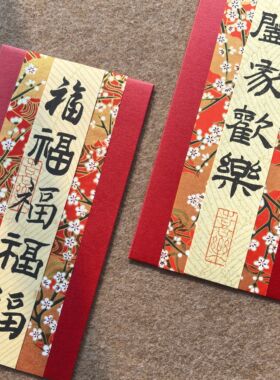 福福福福福
盧家歡樂